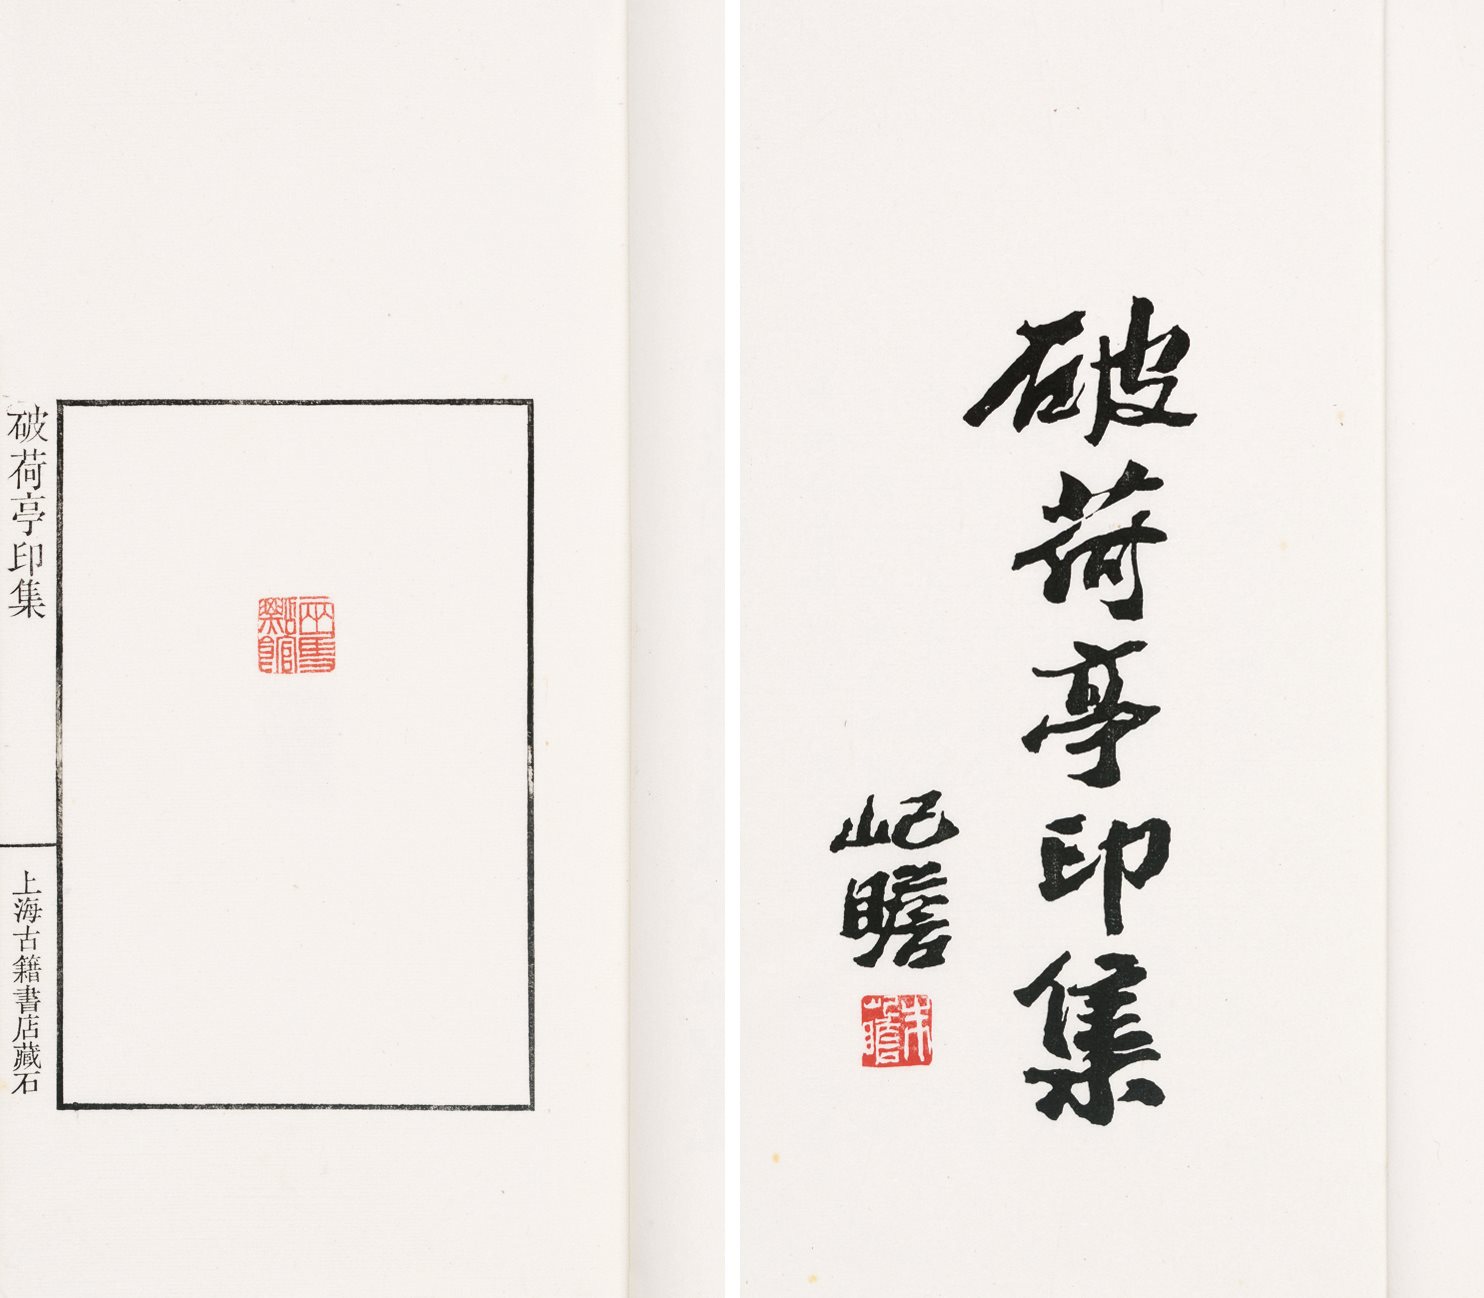 破荷亭印集
屺瞻
朱屺瞻
破荷亭印集
上海古籍書店藏石